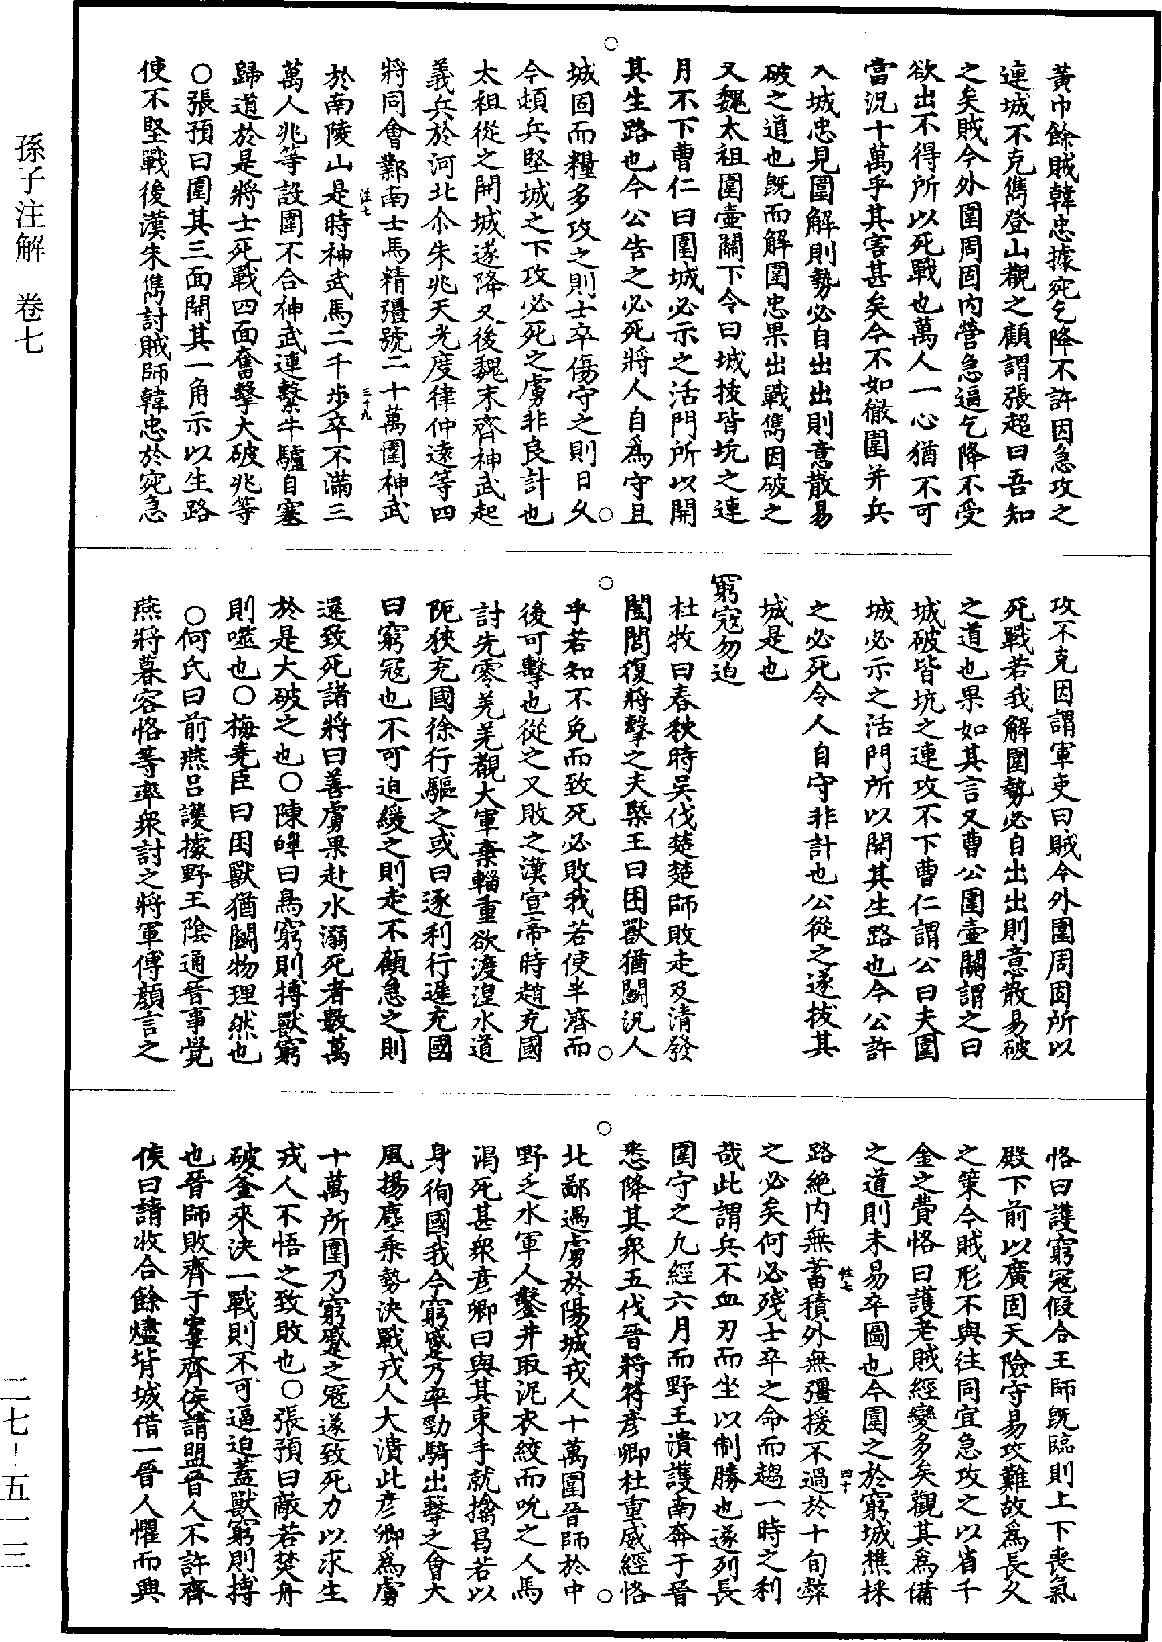 孫子注解　卷七
二七－五一三
黃巾餘賊韓忠據宛乞降不許因急攻之
連城不克儁登山觀之顧謂張超曰吾知
之矣賊今外圍周固內營急逼乞降不受
欲出不得所以死戰也萬人一心猶不可
當況十萬乎其害甚矣今不如徹圍并兵
入城忠見圍解則勢必自出出則意散易
破之道也旣而解圍忠果出戰儁因破之
又魏太祖圍壷關下令曰城拔皆坑之連
月不下曹仁曰圍城必示之活門所以開
其生路也今公告之必死將人自爲守且
城固而糧多攻之則士卒傷守之則日久
今頓兵堅城之下攻必死之虜非良計也
太祖從之開城遂降又後魏末齊神武起
義兵於河北尒朱兆天光度律仲遠等四
將同會鄴南士馬精彊號二十萬圍神武
於南陵山是時神武馬二千步卒不滿三
注七
三十九
萬人兆等設圍不合神武連繫牛驢自塞
歸道於是將士死戰四面奮擊大破兆等
○張預曰圍其三面開其一角示以生路
使不堅戰後漢朱儁討賊師韓忠於宛急
攻不克因謂軍吏曰賊今外圍周固所以
死戰若我解圍勢必自出出則意散易破
之道也果如其言又曹公圍壷關謂之曰
城破皆坑之連攻不下曹仁謂公曰夫圍
城必示之活門所以開其生路也今公許
之必死令人自守非計也公從之遂拔其
城是也
窮寇勿迫
杜牧曰春秋時吳伐楚楚師敗走及清發
闔閭復將擊之夫槩王曰困獸猶鬬況人
乎若知不免而致死必敗我若使半濟而
後可擊也從之又敗之漢宣帝時趙充國
討先零羌羌觀大軍棄輜重欲渡湟水道
阨狹充國徐行驅之或曰逐利行遲充國
曰窮寇也不可迫緩之則走不顧急之則
還致死諸將曰善虜果赴水溺死者數萬
於是大破之也○陳皥曰鳥窮則搏獸窮
則噬也○梅堯臣曰困獸猶鬬物理然也
○何氏曰前燕呂護據野王陰通晉事覺
燕將慕容恪等率衆討之將軍傅顏言之
恪曰護窮寇假合王師旣臨則上下喪氣
殿下前以廣固天險守易攻難故爲長久
之策今賊形不與往同宜急攻之以省千
金之費恪曰護老賊經變多矣觀其爲備
之道則未易卒圖也今圍之於窮城樵採
路絶內無蓄積外無彊援不過於十旬弊
注七
四十
之必矣何必殘士卒之命而趨一時之利
哉此謂兵不血刃而坐以制勝也遂列長
圍守之凡經六月而野王潰護南奔于晉
悉降其衆五代晉將符彥卿杜重威經恪
北鄙遇虜於陽城戎人十萬圍晉師於中
野乏水軍人鑿井取泥衣絞而吮之人馬
渴死甚衆彥卿曰與其束手就擒曷若以
身徇國我今窮蹙乃率勁騎出擊之會大
風揚塵乘勢決戰戎人大潰此彥卿爲虜
十萬所圍乃窮蹙之寇遂致死力以求生
戎人不悟之致敗也○張預曰敵若焚舟
破釜來決一戰則不可逼迫蓋獸窮則搏
也晉師敗齊于鞌齊侯請盟晉人不許齊
侯曰請收合餘燼背城借一晉人懼而與